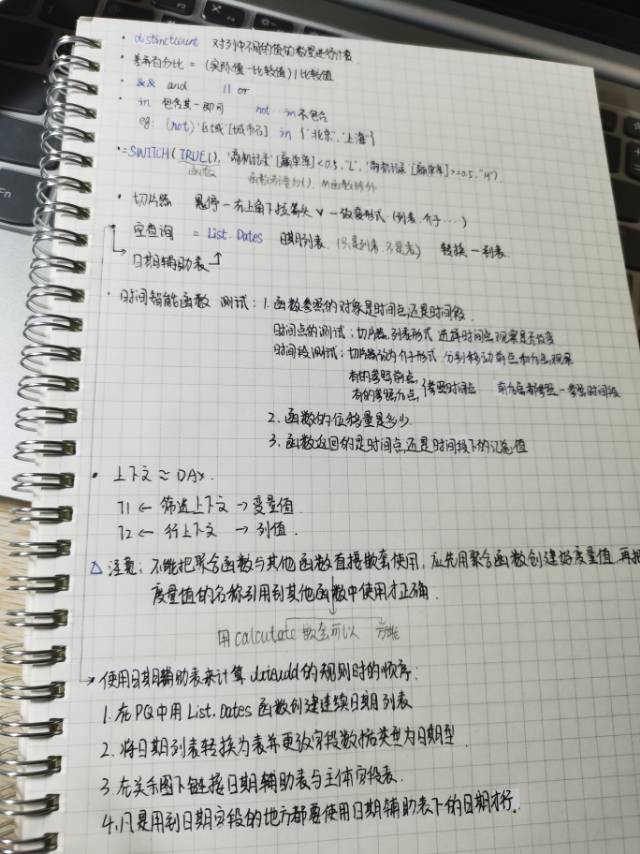 · distinctcount 对列中不同的值的数量进行计数
· 差异百分比 = (实际值-比较值) / 比较值
· && and || or
· in 包含其一即可 not in 不包含
eg: (not) '区域'[城市名] in {"北京","上海"}
· =SWITCH(TRUE(), [赢单率]<0.5,"L", [赢单率]>=0.5,"H")
函数
· 切片器 悬停-右上角下拉箭头∨-改变形式 (列表、介于…)
· 空查询 = List.Dates 日期列表 (只是列表,不是表) 转换-到表
日期辅助表
· 时间智能函数 测试: 1.函数参照的对象是时间点还是时间段
时间点的测试: 切片器列表形式 选择时间点观察是否改变
时间段测试: 切片器设为介于形式 分别移动前点和后点观察
有的参照前点
有的参照后点 参照时间点 前后点都参照-参照时间段
2.函数的位移量是多少
3.函数返回的是时间点还是时间段下的汇总值
· 上下文 ≈ DAX.
T1 ← 筛选上下文 → 度量值
T2 ← 行上下文 → 列值
△ 注意: 不能把聚合函数与其他函数直接嵌套使用, 应先用聚合函数创建好度量值,再把
度量值的名称引用到其他函数中使用才正确.
用calculate嵌套可以
使用日期辅助表来计算 的规则时的顺序:
1.在PQ中用List.Dates函数创建连续日期列表
2.将日期列表转换为表并更改字段数据类型为日期型
3.在关系图下链接日期辅助表与主体字段表.
4.凡是用到日期字段的地方都要使用日期辅助表下的日期才行.